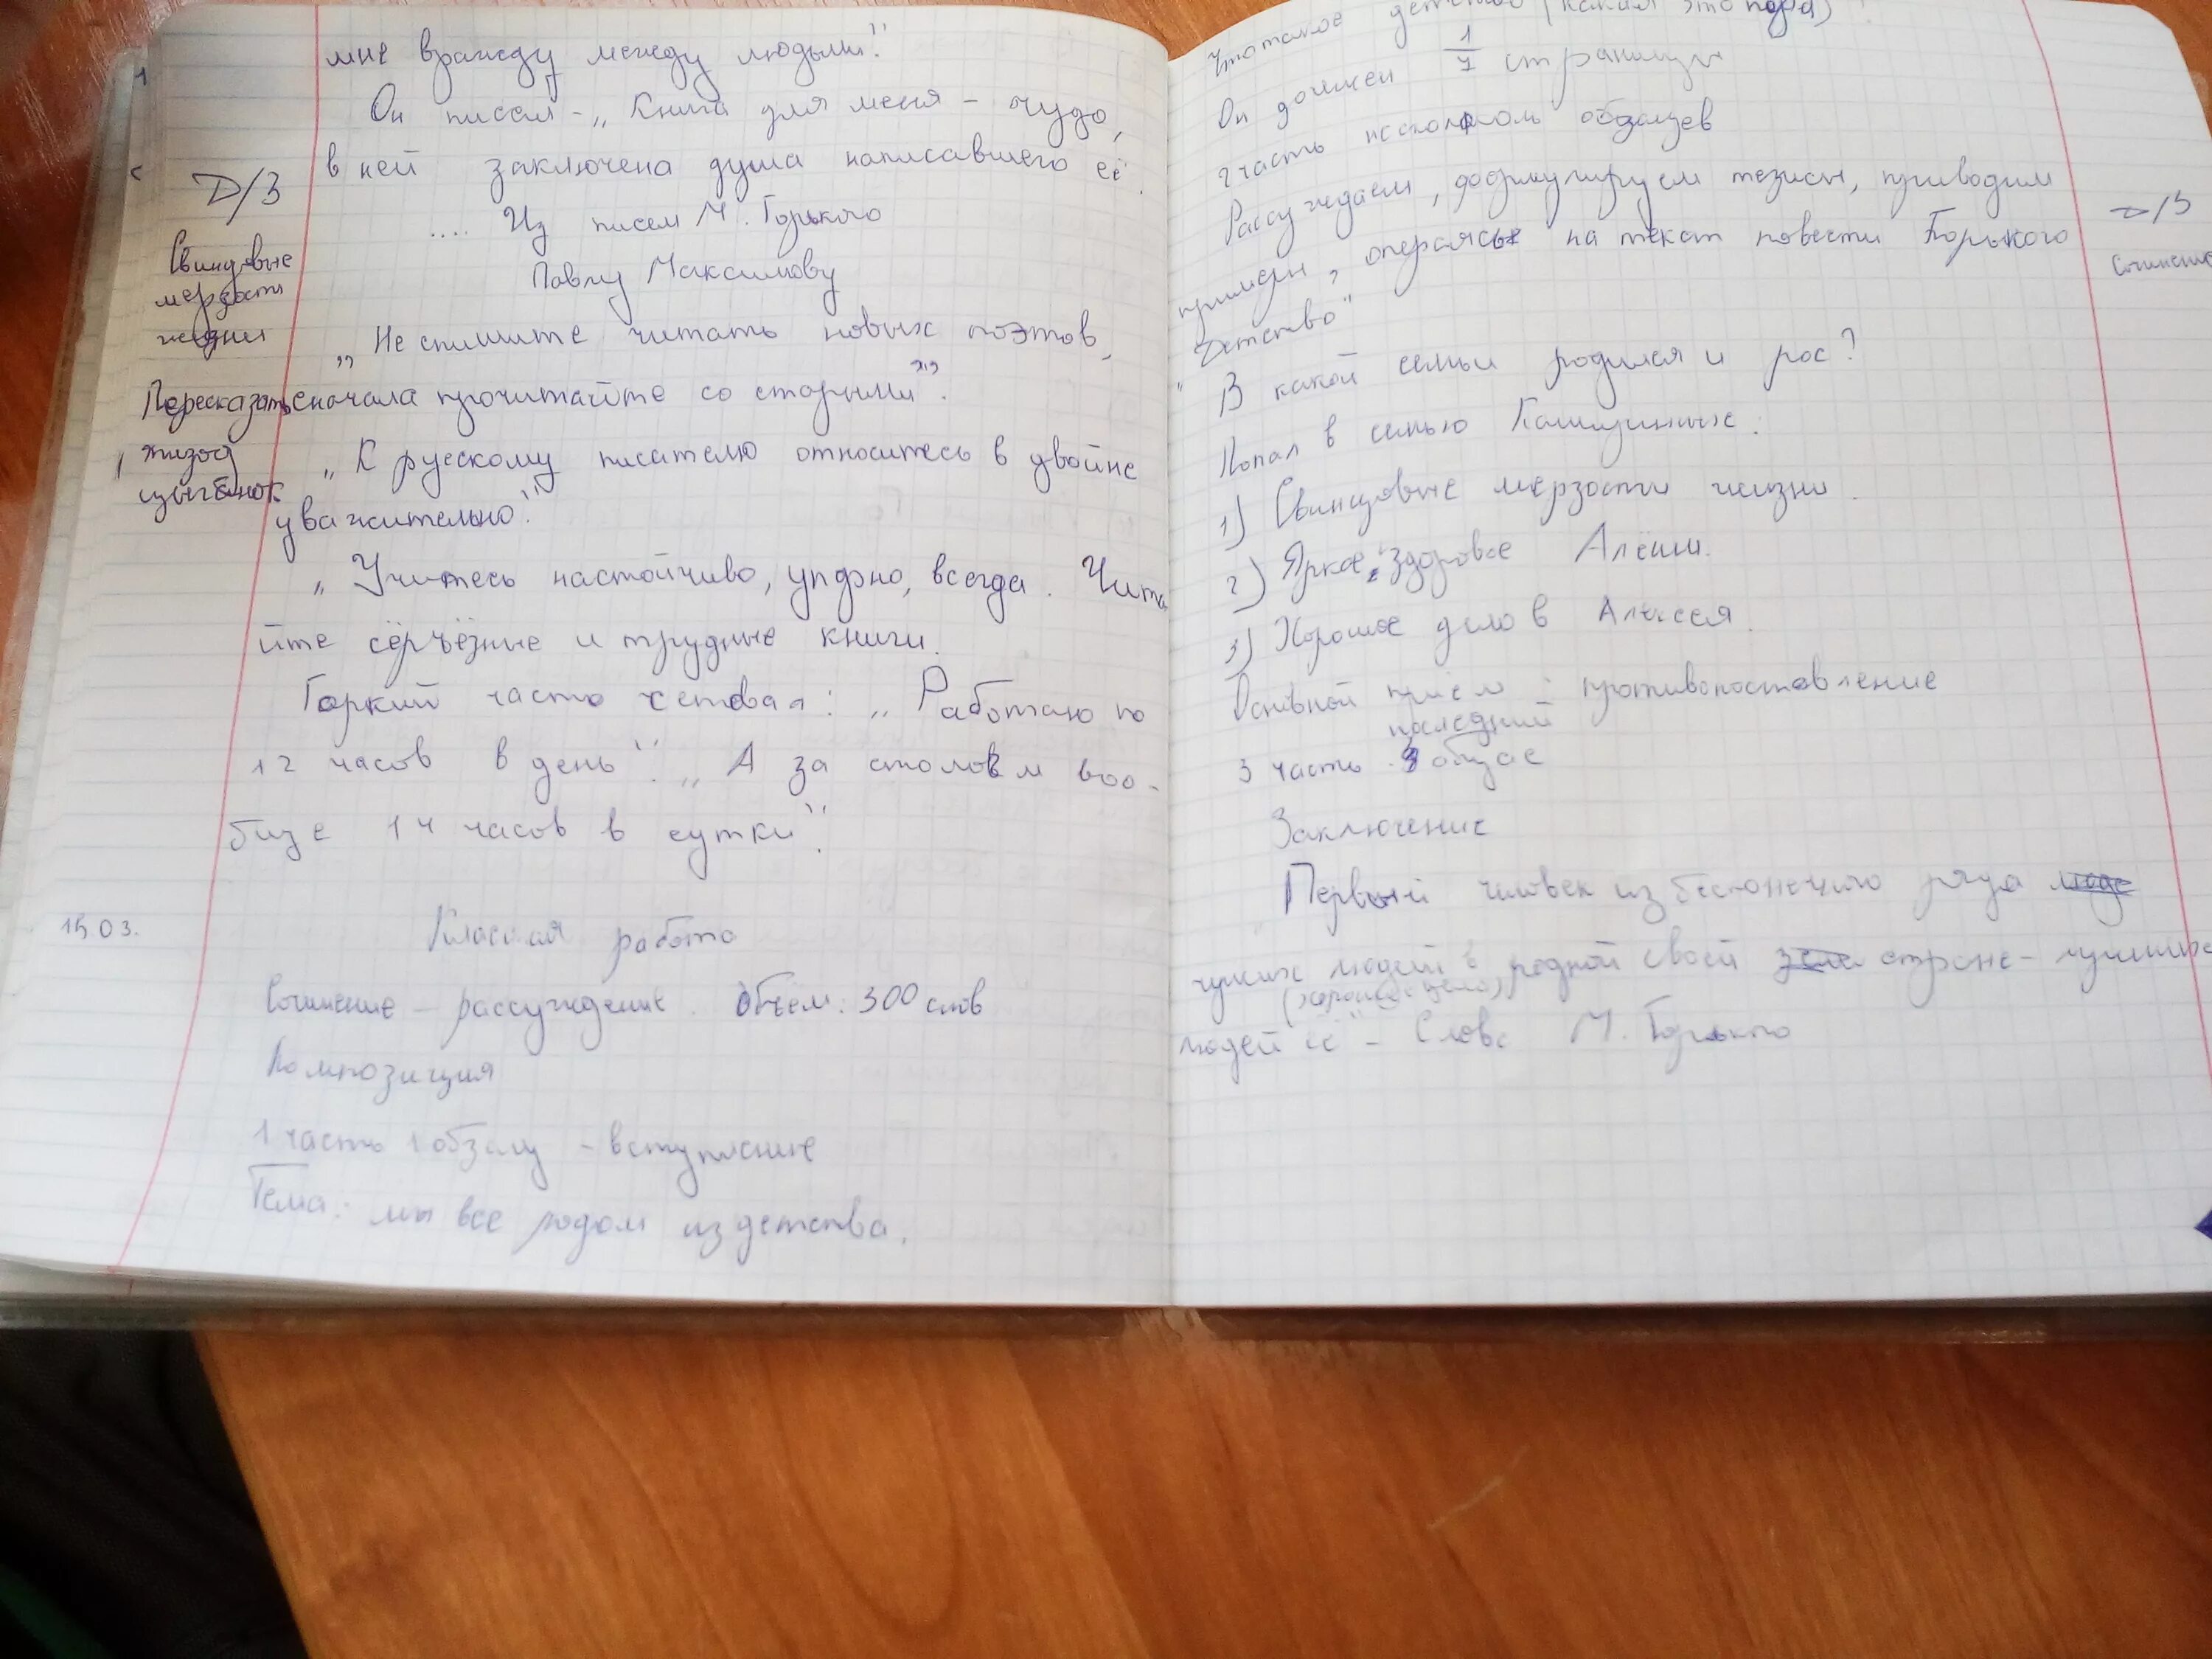 мне вражду между людьми".
Он писал - „ Книга для меня - чудо,
в ней заключена душа написавшего её.
.... Из писем М. Горького
Павлу Максимову
Д/З
Свинцовые
мерзости
жизни
Пересказать
эпизод
цыганок
„ Не спишите читать новых поэтов,
сначала прочитайте со старыми".
„ К русскому писателю относитесь в двойне
уважительно".
„ Учитесь настойчиво, упорно, всегда. Чита
йте сёрьёзные и трудные книги.
Горкий часто сетовал: „ Работаю по
12 часов в день". „ А за столом воо-
бще 14 часов в сутки".
15 03.
Классная работа
Сочинение - рассуждение. Объем: 300 слов
Композиция
1 часть 1 обзацу - вступление
Тема: мы все родом из детства.
Что такое детство (какая это пора)?
Он должен 1/7 страницы
2 часть несколько обзацев
Рассуждаем, формулируем тезисы, приводим
примеры, операясь на текст повести Горького
„ Детство"
Д/З
Сочинение
В какой семьи родился и рос?
Попал в семью Кашириных:
1) Свинцовые мерзости жизни.
2) Яркое, здоровое Алёши.
3) Хорошее дело в Алексея.
Основной приём: противопоставление
последний
3 часть обзац
Заключение
Первый человек из бесконечного ряда
чужих людей в родной своей стране - лучших
(хорошее дело)
людей её" - Слова М. Горького